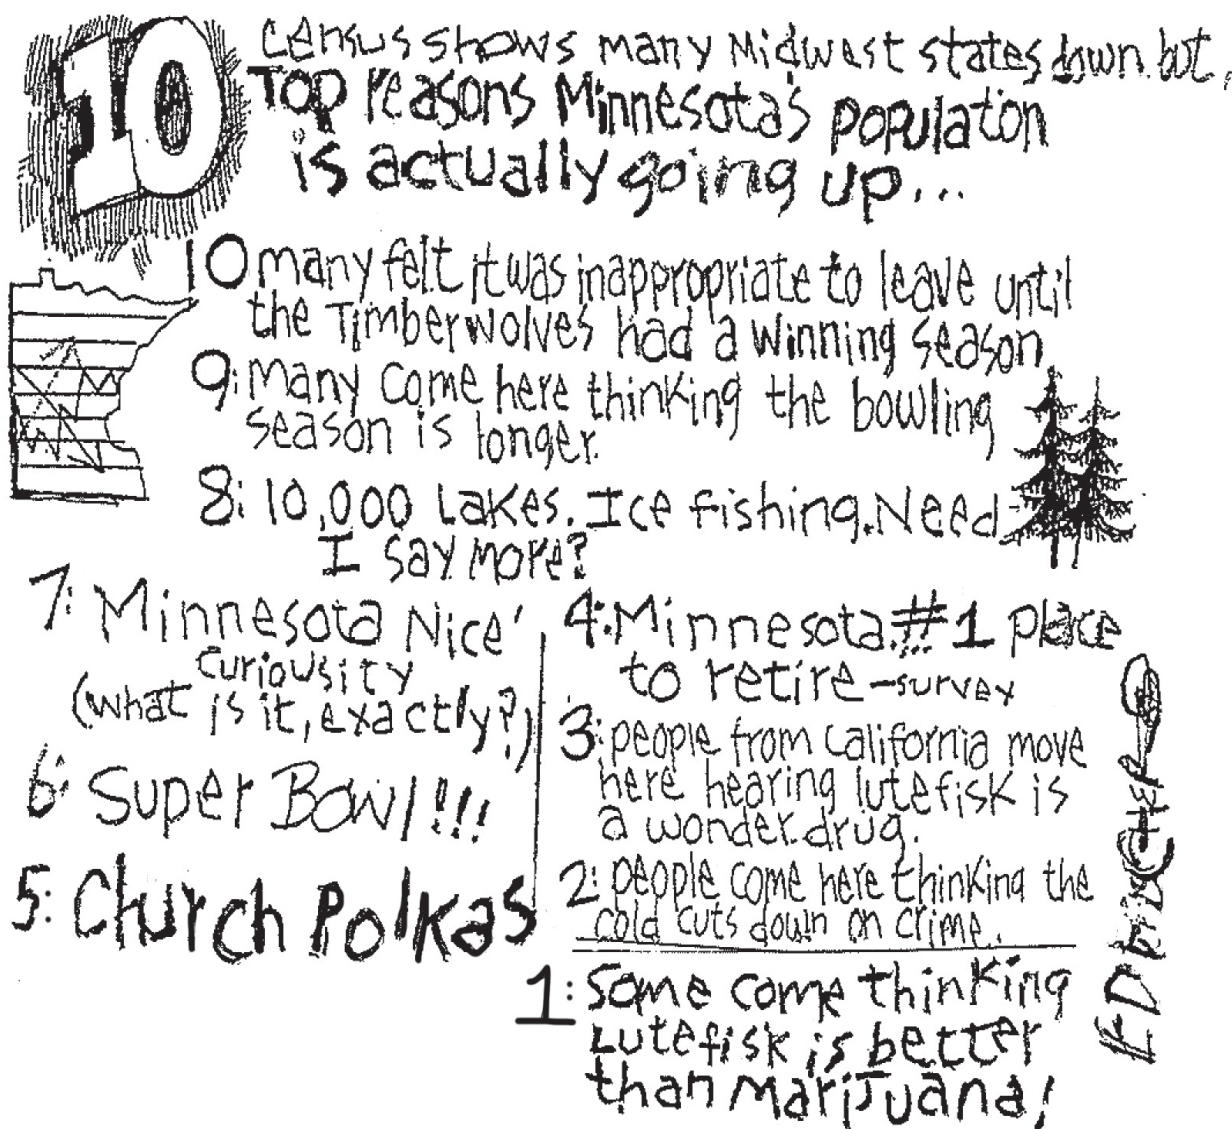 10
Census shows many Midwest states down but,
Top reasons Minnesota's populaton
is actually going up...
10 many felt it was inappropriate to leave until
the Timberwolves had a winning season
9: many come here thinking the bowling
season is longer.
8: 10,000 Lakes. Ice fishing. Need
I say more?
7: 'Minnesota Nice'
curiousity
(what is it, exactly?)
6: Super Bowl!!!
5: Church Polkas
4: Minnesota...#1 place
to retire-survey
3: people from California move
here hearing lutefisk is
a wonder drug.
2: people come here thinking the
cold cuts down on crime.
1: Some come thinking
Lutefisk is better
than Marijuana!
ED